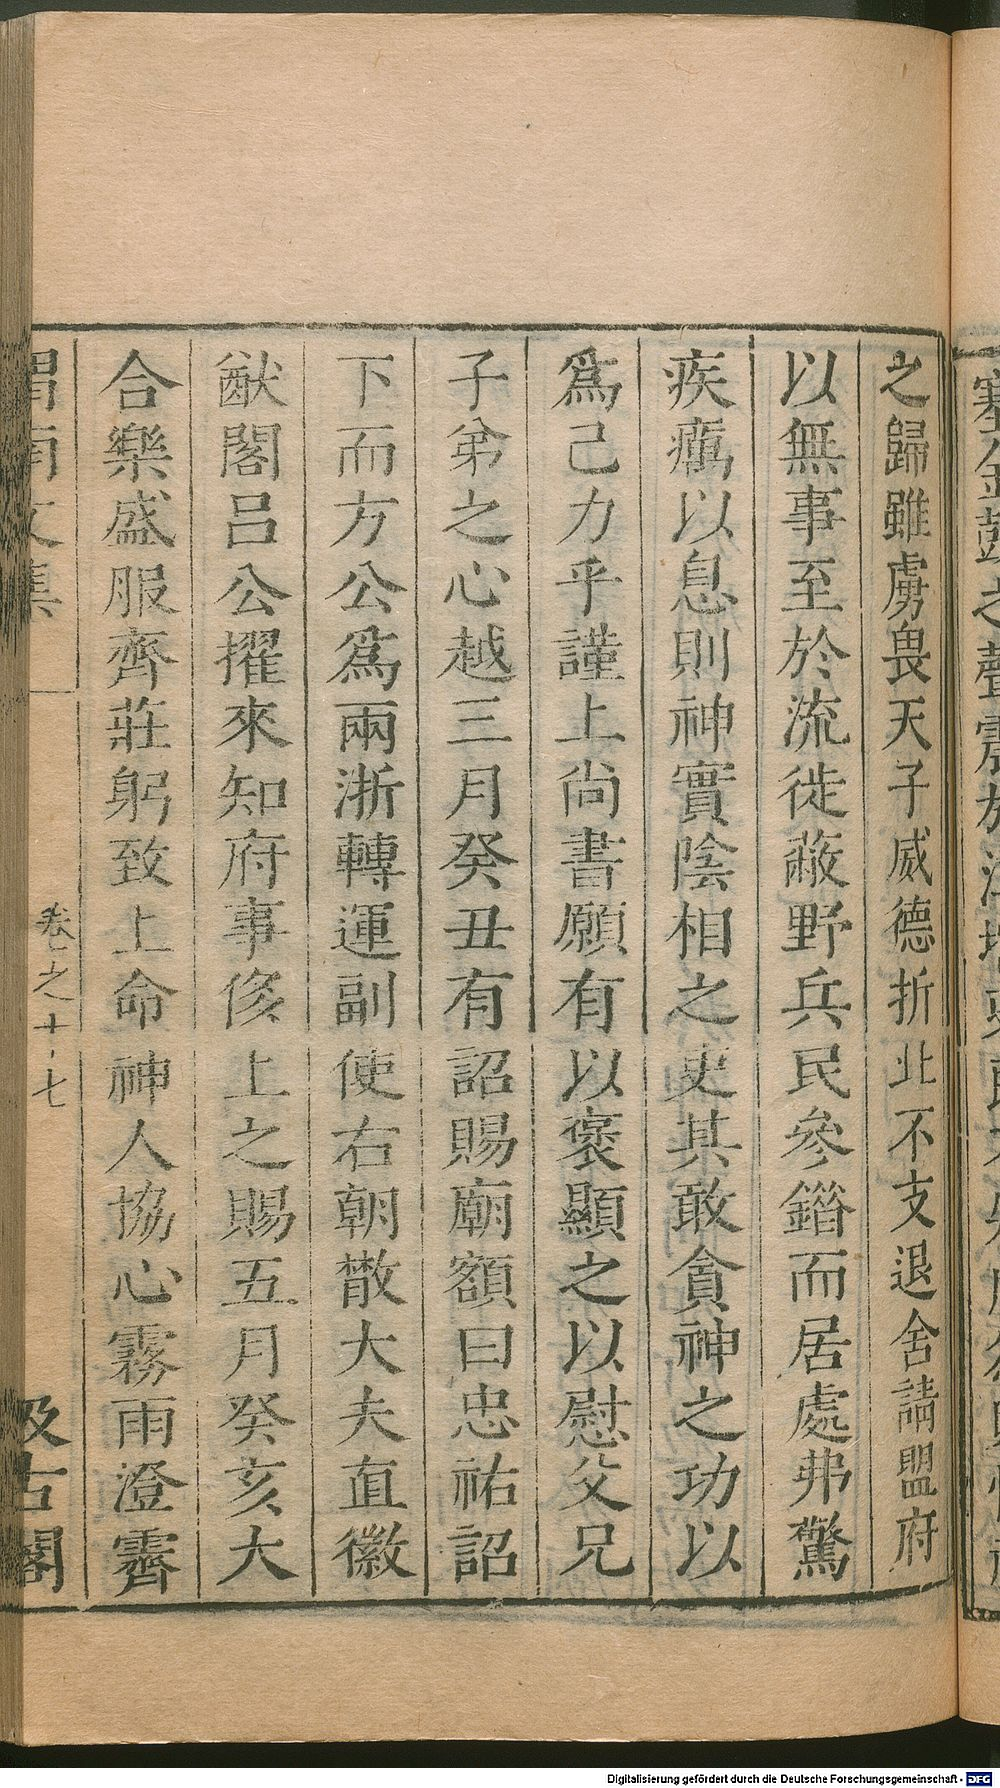 之歸雖虜畏天子威德折北不支退舍請盟府
以無事至於流徙蔽野兵民參錯而居處弗驚
疾癘以息則神實陰相之吏其敢貪神之功以
爲己力乎謹上尚書願有以褒顯之以慰父兄
子弟之心越三月癸丑有詔賜廟額曰忠祐詔
下而方公爲兩浙轉運副使右朝散大夫直徽
猷閣呂公擢來知府事侈上之賜五月癸亥大
合樂盛服齊莊躬致上命神人協心霧雨澄霽
渭南文集
卷之十七
汲古閣
Digitalisierung gefördert durch die Deutsche Forschungsgemeinschaft - DFG